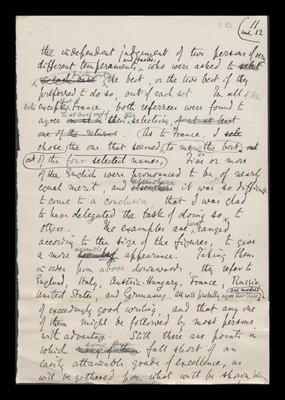 10 11 and 12
the independent judgement of two persons of very
different temperaments, and tastes who were asked to select
the best, or the two best if they
preferred to do so, out of each set. In all
sets except that France, both referees were found to
agree in their selecting
out of the returns. (As to France, I
chose the one that seemed to me the best,
of the four selected names,) Five or more
of the English were pronounced to be of nearly
equal merit, and it was so difficult
to come to a conclusion, that I was glad
to have delegated the task of doing so to
others. The examples are ranged
according to the size of the figures, to give
a more appearance. Taking them
in order from above downwards, they refer to
England, Italy, Austria-Hungary, France, Russia
United States, and Germany. All will probably agree that
of exceedingly good writing, and that any one
of them might be followed by most persons
with advantage. Still there are points in
which fall short of an
easily attainable grade of excellence, as
will be gathered from what will be shown below,